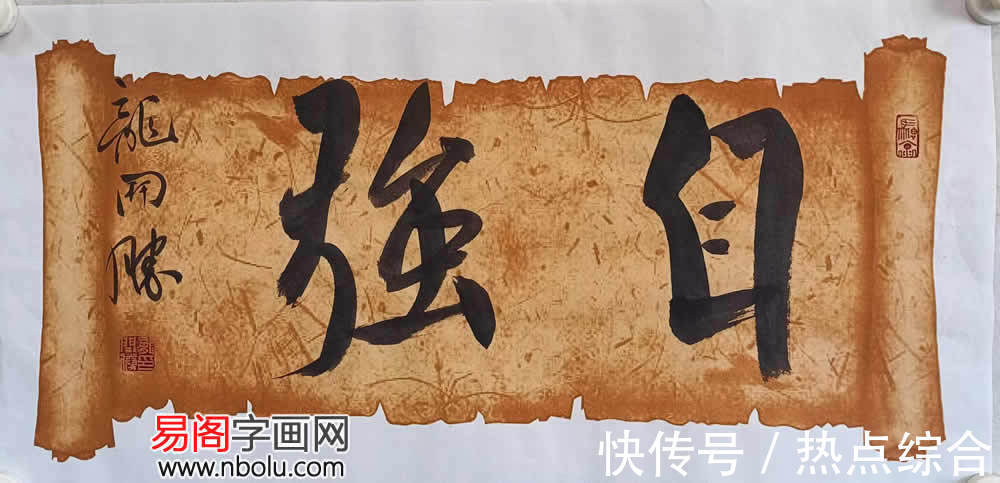 自強
龍開勝
易阁字画网
www.nbolu.com
快传号 / 热点综合